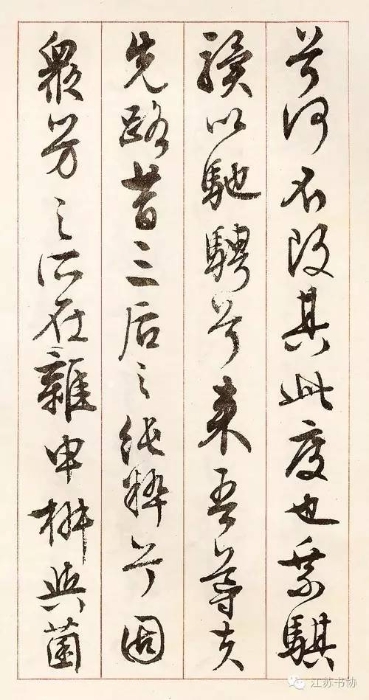 兮何不改其此度也乘騏
驥以馳騁兮來吾導夫
先路昔三后之純粹兮固
眾芳之所在雜申椒與菌
江苏书协